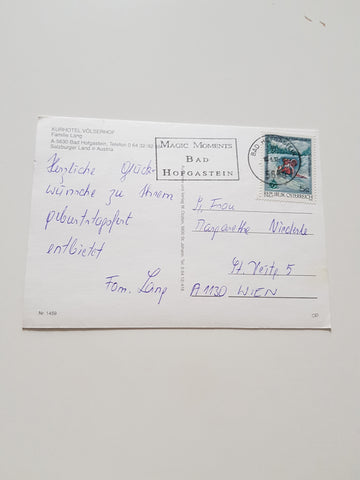 KURHOTEL VÖLSERHOF
Familie Lang
A-5630 Bad Hofgastein, Telefon 0 64 32/82 88
Salzburger Land in Austria
Herzliche Glück-
wünsche zu Ihrem
Geburtstagsfest
entbietet
Fam. Lang
Nr. 1459
MAGIC MOMENTS
BAD
HOFGASTEIN
BAD HOFGASTEIN
REPUBLIK ÖSTERREICH
Frau
Margarethe Niederle
St. Veitg 5
A 1130 WIEN